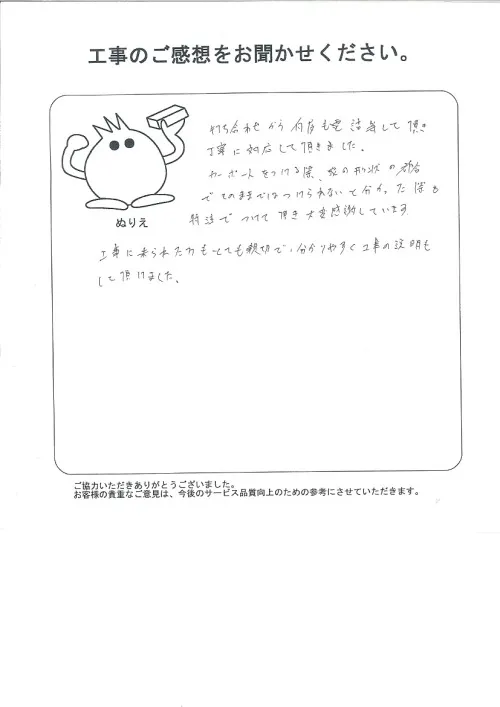 工事のご感想をお聞かせください。
打ち合わせから何度も電話等して頂き
丁寧に対応して頂きました。
カーポートをつける際、坂の形状の都合
でそのままではつけられないと分かった際も
特注でつけて頂き大変感謝しています
ぬりえ
工事に来られた方もとても親切で、分かりやすく工事の説明も
して頂けました。
ご協力いただきありがとうございました。
お客様の貴重なご意見は、今後のサービス品質向上のための参考にさせていただきます。